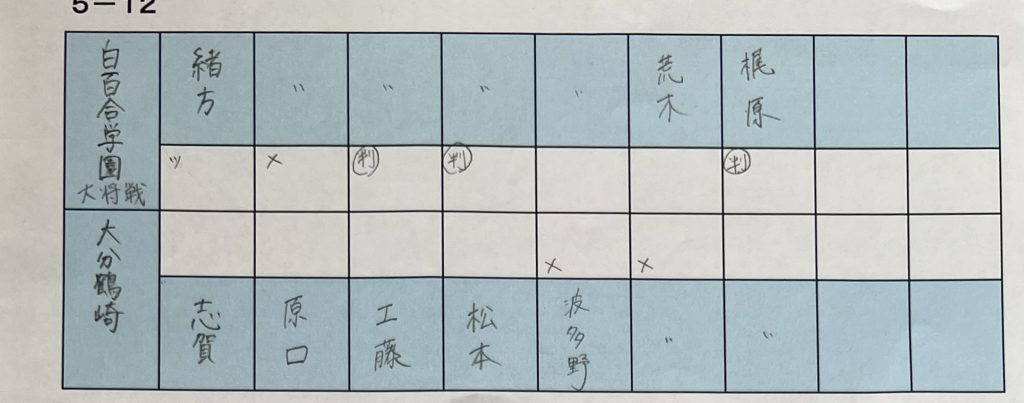 5－12
白百合学園 緒方 〃 〃 〃 〃 荒木 梶原
大将戦 ッ × 判 判 判
大分鶴崎 × ×
志賀 原口 工藤 松本 波多野 〃 〃